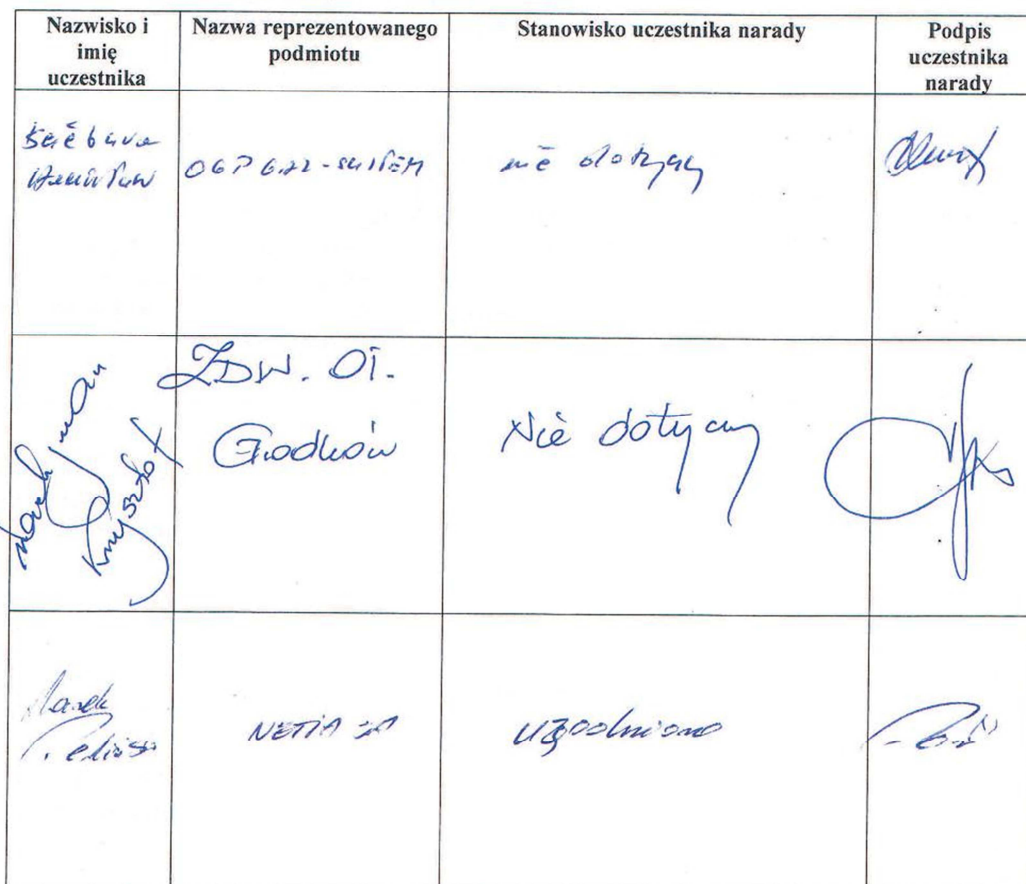 Nazwisko i
imię
uczestnika
Nazwa reprezentowanego
podmiotu
Stanowisko uczestnika narady
Podpis
uczestnika
narady
OGP GAZ-SYSTEM
nie dotyczy
Krzysztof
ZDW. Ot.
Grodków
Nie dotyczy
Marek
NETIA SA
uzgodniono